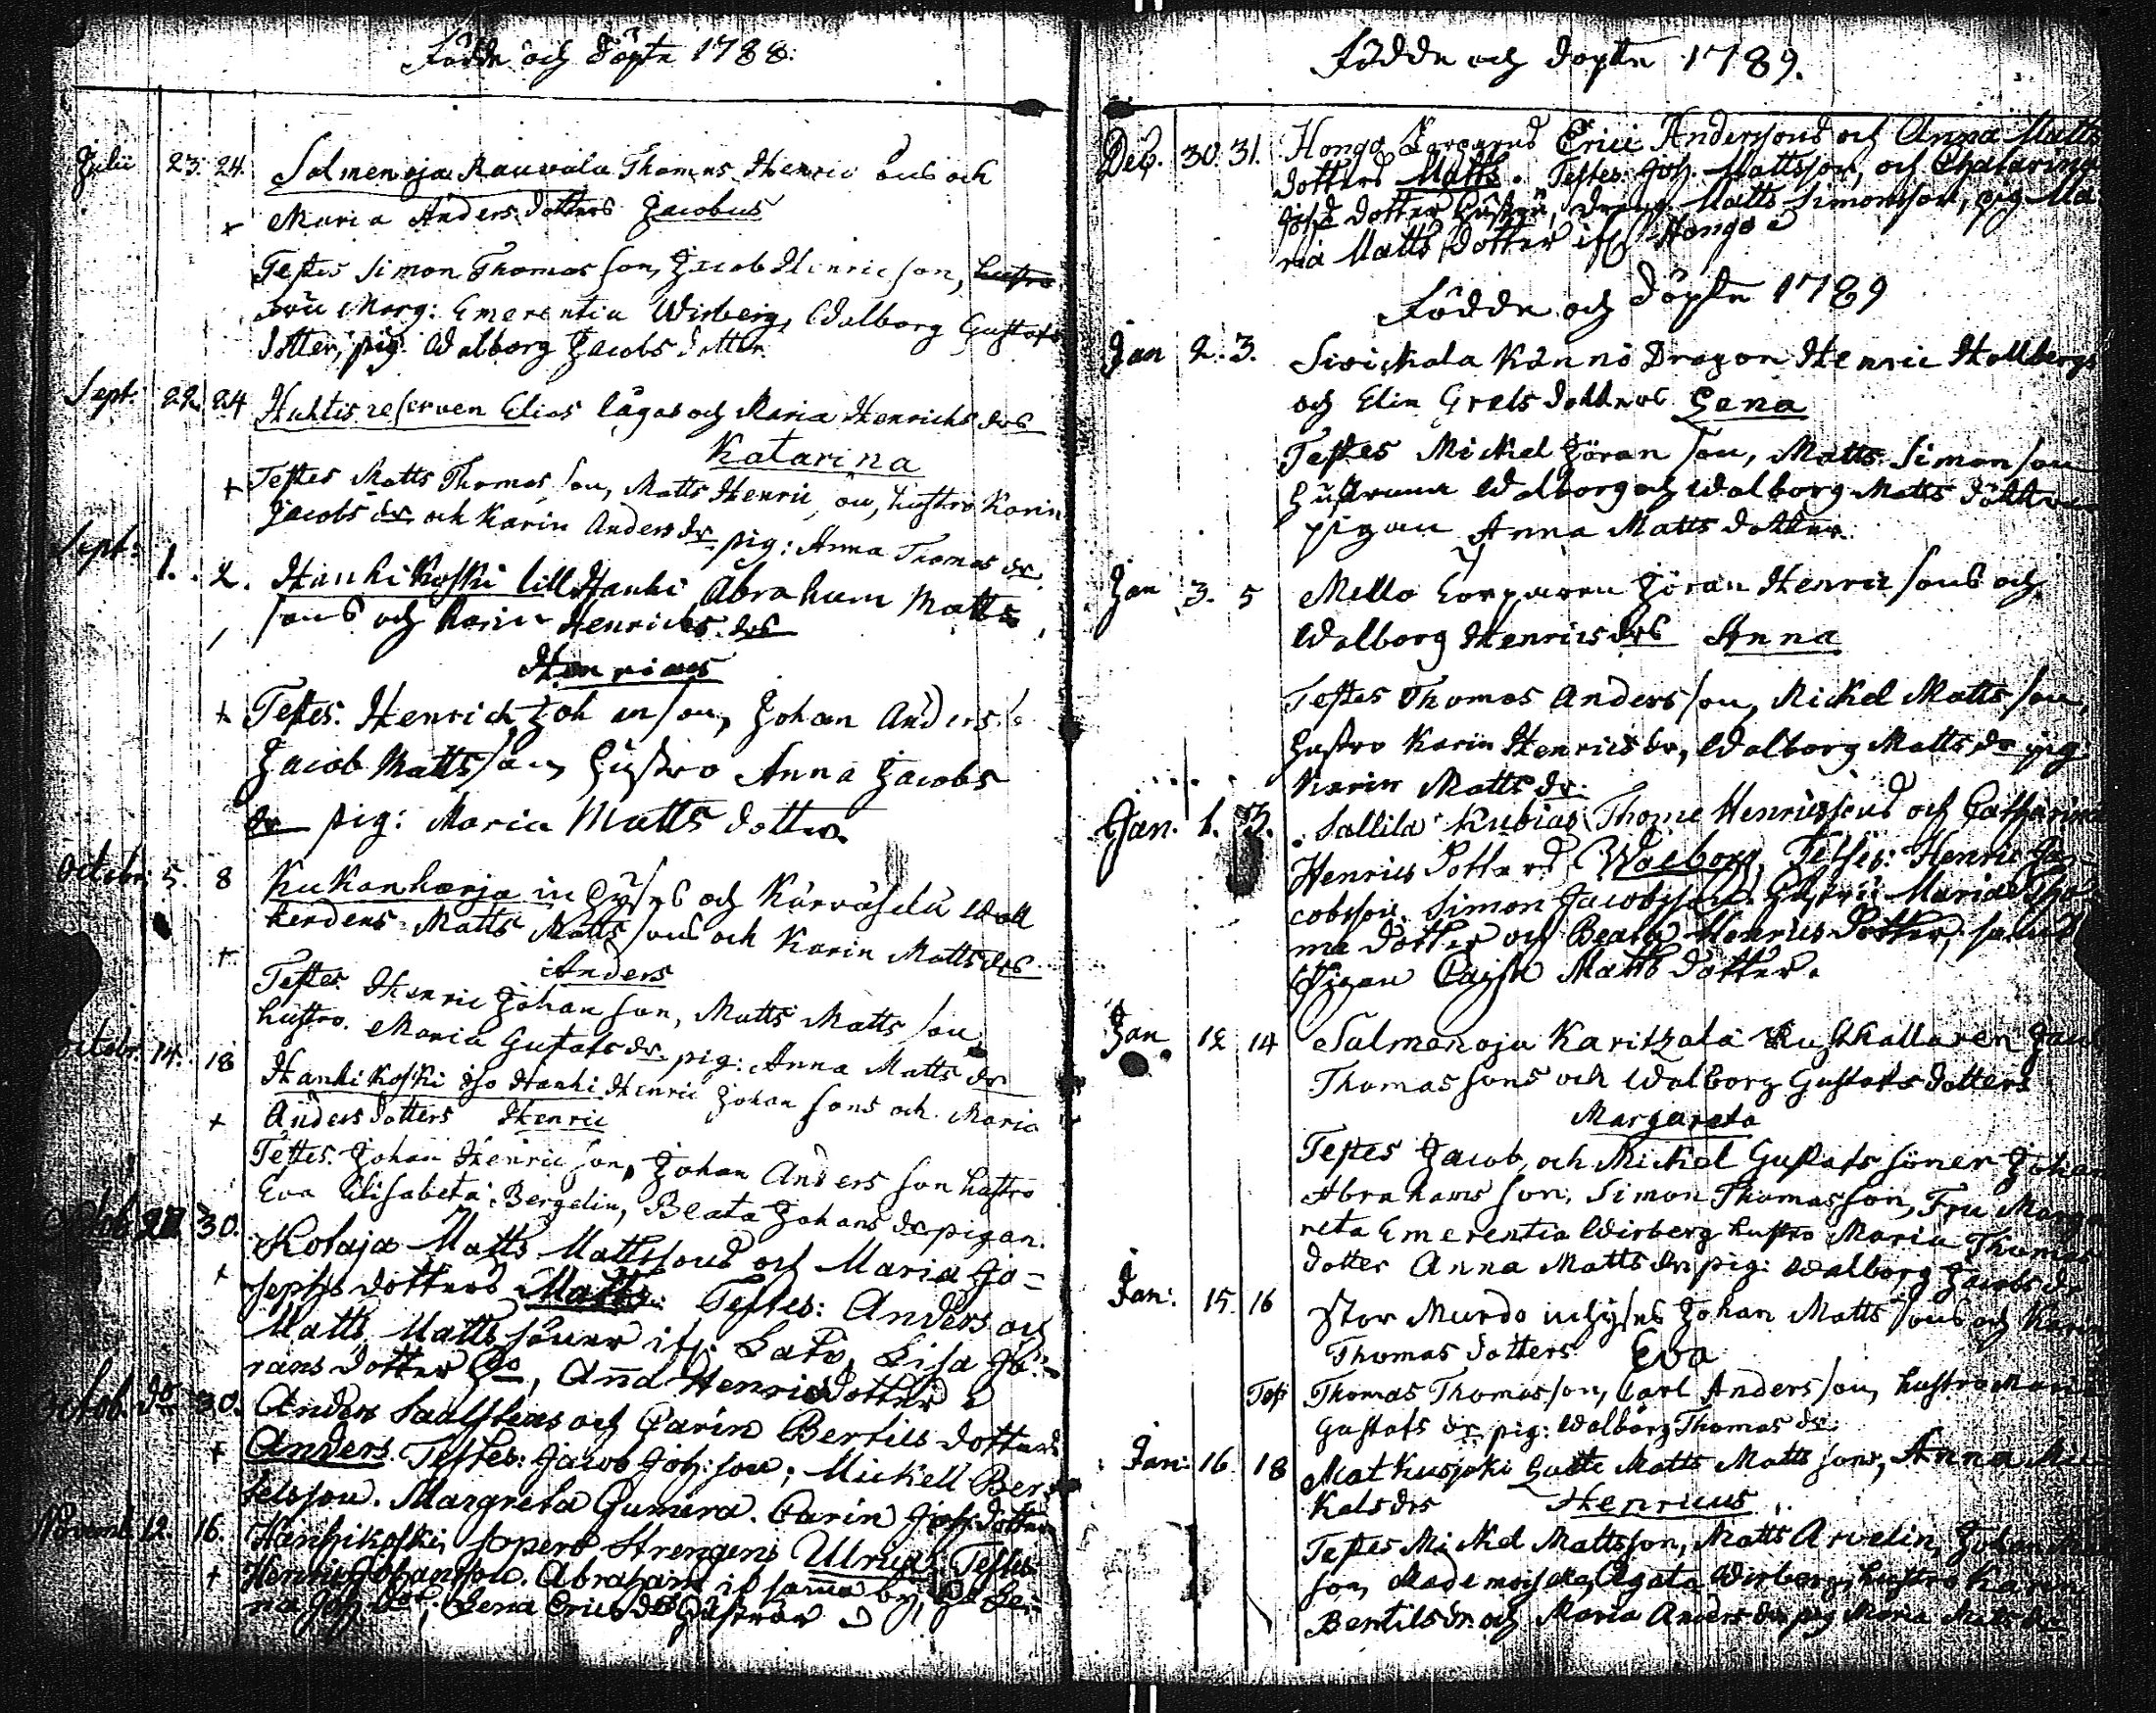 Födde och döpte 1788.
Julii 23. 24. Salmenoja Rauvala Thomas Henric sons och
+ Maria Anders dotters Jacobus
Testes Simon Thomas son, Jacob Henric son,
Marg: Emerentia Wirberg, Walborg Gustafs
dotter, pig: Walborg Jacobs dotter.
Sept. 22. 24 Huhtis reserven Elias Lågas och Maria Henrichs drs
Katarina
+ Testes Matts Thomas son, Matts Henric son, hustro Karin
Jacobs dr och Karin Anders dr pig: Anna Thomas dr
Sept: 1. 2. Hanhikoski lill Hanhi Abraham Matts
sons och Karin Henrichs drs
Henricus
+ Testes. Henrich Joh an son, Johan Anders
Jacob Matts son, Hustro Anna Jacobs
dr pig: Maria Matts dotter.
Octobr: 5. 8 Kukonharja in hyses och Wall
herdens Matts Matts sons och Karin Matts drs
+ Anders
Testes Henric Johan son, Matts Matts son
hustro. Maria Gustafs dr pig: Anna Matts dr
octobr. 14. 18 Hanhikoski iso Hanhi Henric Johan sons och Maria
+ Anders dotters Henric
Testes. Johan Henric son, Johan Anders son hustro
Eva Elisabeta Bergelin, Beata Johans dr pigan.
Octob. 30. Kolaja Matts Mattssons och Maria Jo=
+ sephs dotters Matts. Testes: Anders och
Matts Matts söner if: Lisa Jö=
rans dotter, Anna Henrics dotter
octob. do 30. Anders och Carin Bertils dotters
+ Anders. Testes: Jacob Joh: son; Mickell Ber
telsson. Margreta Gumera. Carin dotter
Novemb. 12. 16. Hanhikoski sopero Strengens Ulrica. Testes
+ Henric Johansson. Abraham if samma by,
na dot, Lena Erics ds Hustrur
Födde och döpte 1789.
Dec. 30. 31. Hongo Erici Anderssons och Anna Matts
dotters Matts. Testes. Joh. Mattsson, och Chatarina
dotter Hustru, dreng Matts Simonsson, pig Ma
ria Matts dotter if Hongo
Födde och döpte 1789
Jan 2. 3. Sirickala Kännö Dragon Henric Hallbergs
och Elin Grels dotters Lena
Testes Mickel Jöran son, Matts Simon son
Hustruna Walborg och Walborg Matts dotter
pigan Anna Matts dotter.
Jan 3. 5 Mello Jöran Henric sons och
Walborg Henrics drs Anna
Testes Thomas Anders son, Mickel Matts son,
hustro Karin Henrics dr, Walborg Matts dr pig:
Karin Matts dr.
Jan. 1. 3. Sallila Kubias Thome Henricssons och Catharina
Henrics dotters Walborg. Testes: Henric Ja=
cobsson. Simon Jacobsson. Maria Tho
mæ dotter och Beata Henrics dotter, samt
Pigan Cajsa Matts dotter.
Jan 12 14 Salmenoja Karitzala Rusthallaren
Thomas sons och Walborg Gustafs dotters
Margareta
Testes Jacob, och Mickel Gustafs söner Johan
Abrahams son, Simon Thomas son, Fru Marga
reta Emerentia Wirberg hustro Maria Thomas
dotter Anna Matts dr pig: Walborg Jacobs dr
Jan: 15. 16 Stor Murdo inhyses Johan Matts sons och Karin
Thomas dotters Eva
Test Thomas Thomas son, Carl Anders son, hustro Maria
Gustafs dr pig: Walborg Thomas dr.
Jan: 16. 18 Matkusjoki Matts Matts sons, Anna Mic
kels drs Henricus
Testes Mickel Mattsson, Matts Arvelin, Johan
son, Mademoiselle Agata Wirberg, hustro Karin
Bertils dr. och Maria Anders dr pig Maria Matts dr